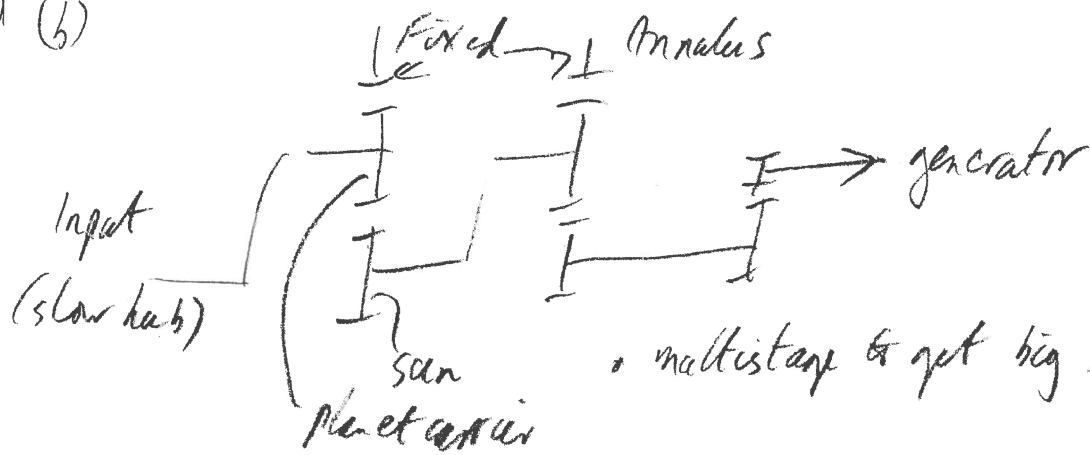 (b)
Fixed Annulus
generator
Input
(slow hub)
sun
planet carrier
• multistage to get big